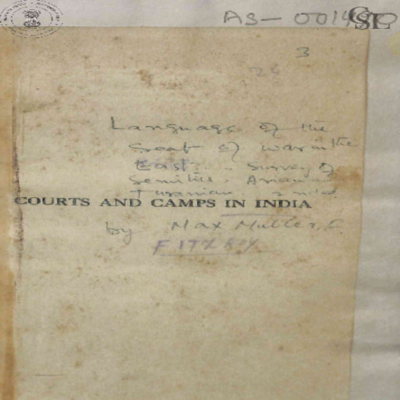 AS-001490
CSL
3
26
Language of the
Seat of War in the
East. Survey of
Semitic, Arian
Turanian
COURTS AND CAMPS IN INDIA
by Max Muller, F.